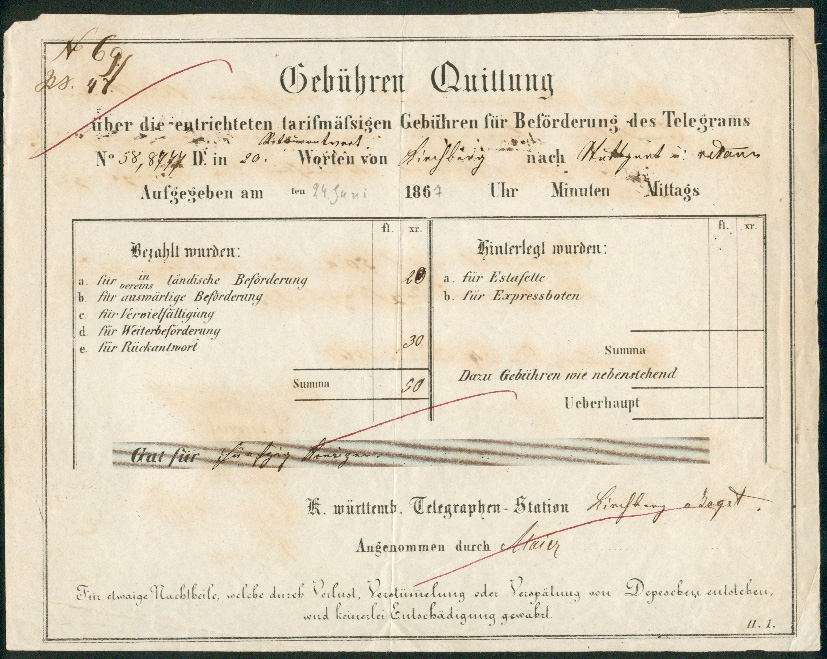 N 69
47.
Gebühren Quittung
über die entrichteten tarifmäſsigen Gebühren für Beförderung des Telegrams
Nº D. in 20. Worten von Kirchberg nach Stuttgart u. retour
Aufgegeben am ten 24 Juni 1867 Uhr Minuten Mittags
fl. xr. fl. xr.
Bezahlt wurden: Hinterlegt wurden:
a. für in vereins ländische Beförderung 20 a. für Estafette
b. für auswärtige Beförderung b. für Expressboten
c. für Vervielfältigung
d. für Weiterbeförderung
e. für Rückantwort 30 Summa
Dazu Gebühren wie nebenstehend
Summa 50
Ueberhaupt
Gut für fünfzig Kreizer.
K. württemb. Telegraphen-Station Kirchberg a Jagst.
Angenommen durch Maier
Für etwaige Nachtheile, welche durch Verlust, Verstümelung oder Verspätung von Depeschen entstehen,
wird keinerlei Entschädigung gewährt.
II. 1.